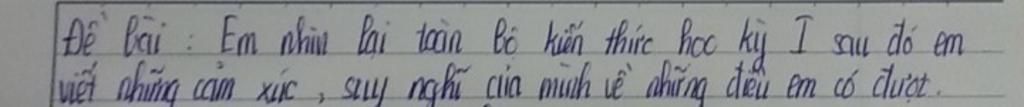 Đề bài : Em nhìn lại toàn bộ kiến thức học kỳ I sau đó em
viết những cảm xúc, suy nghĩ của mình về những điều em có được.